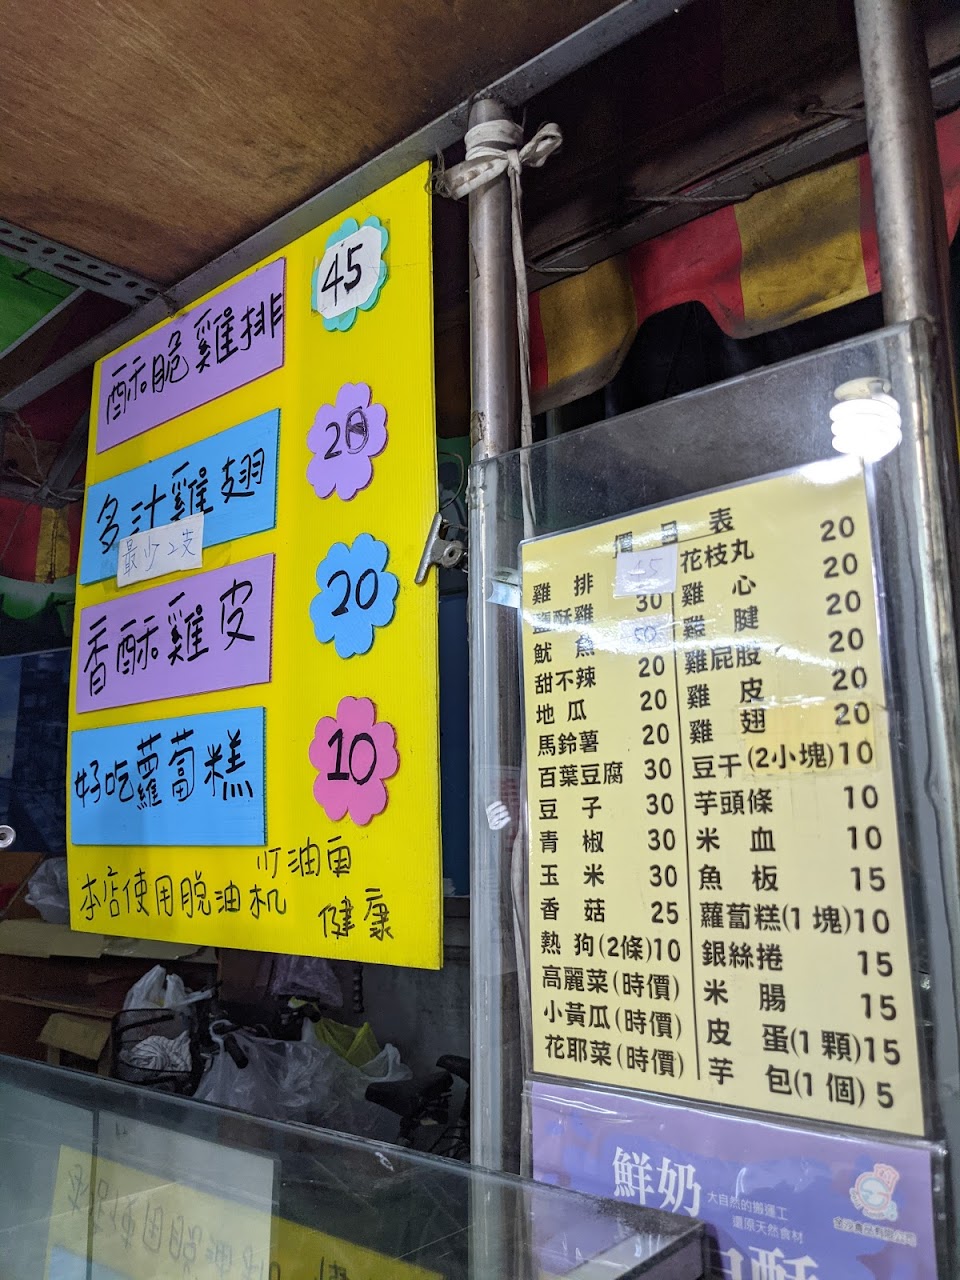 酥脆雞排 45
多汁雞翅
最少2支
香酥雞皮 20
好吃蘿蔔糕 10
本店使用脱油机
少油更
健康
價目表
雞排 45
鹽酥雞 30
魷魚 50
甜不辣 20
地瓜 20
馬鈴薯 20
百葉豆腐 30
豆子 30
青椒 30
玉米 30
香菇 25
熱狗(2條)10
高麗菜(時價)
小黃瓜(時價)
花耶菜(時價)
花枝丸 20
雞心 20
雞腱 20
雞屁股 20
雞皮 20
雞翅 20
豆干(2小塊)10
芋頭條 10
米血 10
魚板 15
蘿蔔糕(1塊)10
銀絲捲 15
米腸 15
皮蛋(1顆)15
芋包(1個)5
鮮奶
大自然的搬運工
還原天然食材
酥